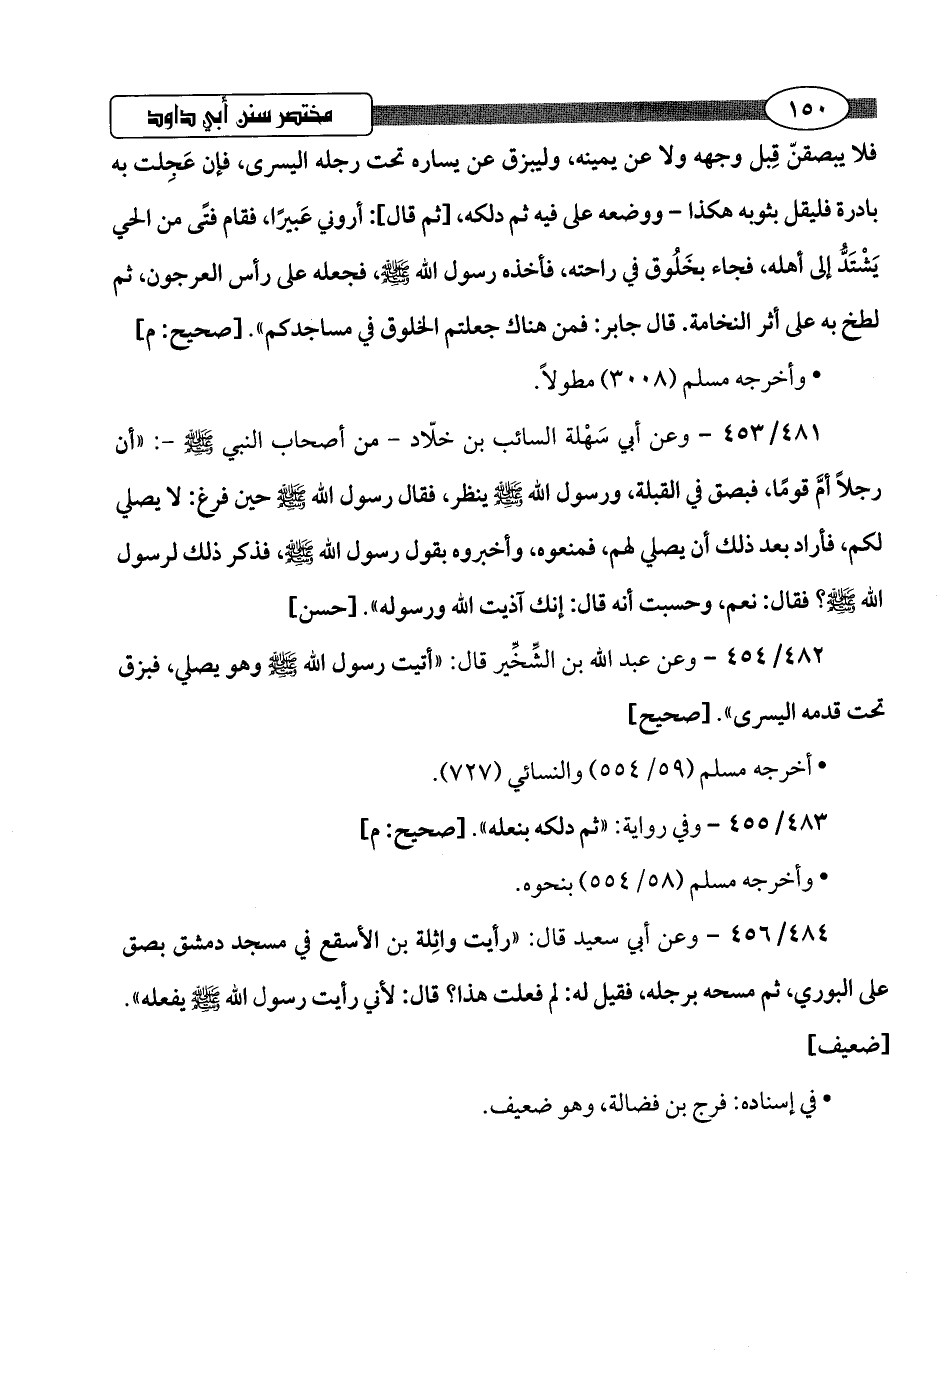 ١٥٠
مختصر سنن أبي داود
فلا يبصقنّ قِبل وجهه ولا عن يمينه، وليبزق عن يساره تحت رجله اليسرى، فإن عَجِلت به
بادرة فليقل بثوبه هكذا – ووضعه على فيه ثم دلكه، [ثم قال]: أروني عَبيرًا، فقام فتًى من الحي
يَشْتَدُّ إلى أهله، فجاء بخَلُوق في راحته، فأخذه رسول الله ﷺ، فجعله على رأس العرجون، ثم
لطخ به على أثر النخامة. قال جابر: فمن هناك جعلتم الخلوق في مساجدكم». [صحيح: م]
• وأخرجه مسلم (٣٠٠٨) مطولاً.
٤٥٣/٤٨١ – وعن أبي سَهْلة السائب بن خلّاد – من أصحاب النبي ﷺ –: «أن
رجلاً أمَّ قومًا، فبصق في القبلة، ورسول الله ﷺ ينظر، فقال رسول الله ﷺ حين فرغ: لا يصلي
لكم، فأراد بعد ذلك أن يصلي لهم، فمنعوه، وأخبروه بقول رسول الله ﷺ، فذكر ذلك لرسول
الله ﷺ؟ فقال: نعم، وحسبت أنه قال: إنك آذيت الله ورسوله». [حسن]
٤٥٤/٤٨٢ – وعن عبد الله بن الشِّخِّير قال: «أتيت رسول الله ﷺ وهو يصلي، فبزق
تحت قدمه اليسرى». [صحيح]
• أخرجه مسلم (٥٩/ ٥٥٤) والنسائي (٧٢٧).
٤٥٥/٤٨٣ – وفي رواية: «ثم دلكه بنعله». [صحيح: م]
• وأخرجه مسلم (٥٨/ ٥٥٤) بنحوه.
٤٥٦/٤٨٤ – وعن أبي سعيد قال: «رأيت واثِلة بن الأسقع في مسجد دمشق بصق
على البوري، ثم مسحه برجله، فقيل له: لم فعلت هذا؟ قال: لأني رأيت رسول الله ﷺ يفعله».
[ضعيف]
• في إسناده: فرج بن فضالة، وهو ضعيف.